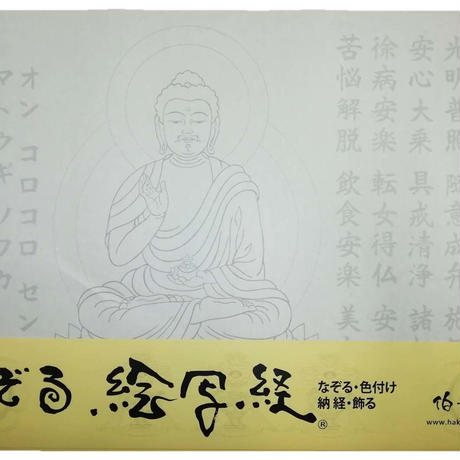 光明普照 随意成弁 施
安心大乗 具戒清浄 諸
徐病安楽 転女得仏 安
苦悩解脱 飲食安楽 美
オン コロコロ セン
マトウギ ソワカ
ぞる 絵写経®
なぞる・色付け
納経・飾る
伯
www.hak